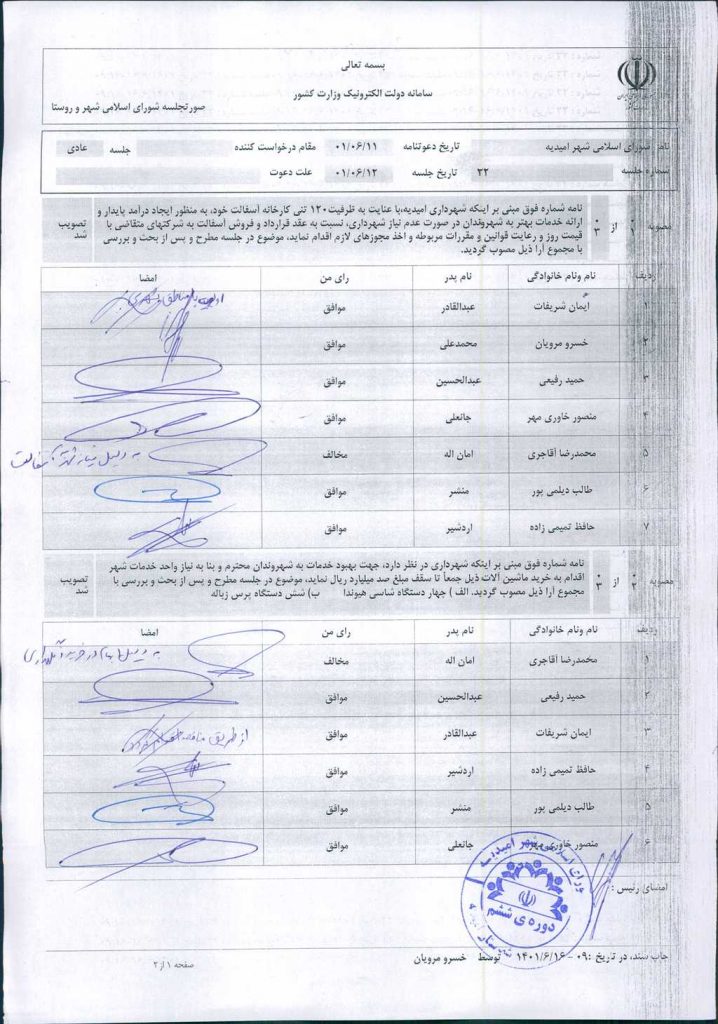 بسمه تعالی
سامانه دولت الکترونیک وزارت کشور
صورتجلسه شورای اسلامی شهر و روستا
نام: شورای اسلامی شهر امیدیه تاریخ دعوتنامه ۰۱/۰۶/۱۱ مقام درخواست کننده جلسه عادی
شماره جلسه ۲۲ تاریخ جلسه ۰۱/۰۶/۱۲ علت دعوت
مصوبه ۱ از ۳
نامه شماره فوق مبنی بر اینکه شهرداری امیدیه،با عنایت به ظرفیت۱۲۰ تنی کارخانه آسفالت خود، به منظور ایجاد درآمد پایدار و
ارائه خدمات بهتر به شهروندان در صورت عدم نیاز شهرداری، نسبت به عقد قرارداد و فروش آسفالت به شرکتهای متقاضی با
قیمت روز و رعایت قوانین و مقررات مربوطه و اخذ مجوزهای لازم اقدام نماید، موضوع در جلسه مطرح و پس از بحث و بررسی
با مجموع آرا ذیل مصوب گردید.
تصویب شد
ردیف نام ونام خانوادگی نام پدر رای من امضا
۱ ایمان شریفات عبدالقادر موافق
۲ خسرو مرویان محمدعلی موافق
۳ حمید رفیعی عبدالحسین موافق
۴ منصور خاوری مهر جانعلی موافق
۵ محمدرضا آقاجری امان اله مخالف
۶ طالب دیلمی پور منشر موافق
۷ حافظ تمیمی زاده اردشیر موافق
مصوبه ۲ از ۳
نامه شماره فوق مبنی بر اینکه شهرداری در نظر دارد، جهت بهبود خدمات به شهروندان محترم و بنا به نیاز واحد خدمات شهر
اقدام به خرید ماشین آلات ذیل جمعاً تا سقف مبلغ صد میلیارد ریال نماید، موضوع در جلسه مطرح و پس از بحث و بررسی با
مجموع آرا ذیل مصوب گردید. الف ) چهار دستگاه شاسی هیوندا ب) شش دستگاه پرس زباله
تصویب شد
ردیف نام ونام خانوادگی نام پدر رای من امضا
۱ محمدرضا آقاجری امان اله مخالف
۲ حمید رفیعی عبدالحسین موافق
۳ ایمان شریفات عبدالقادر موافق
۴ حافظ تمیمی زاده اردشیر موافق
۵ طالب دیلمی پور منشر موافق
۶ منصور خاوری مهر جانعلی موافق
امضای رئیس :
دوره ی ششم
چاپ سند، در تاریخ :۰۹ - ۱۴۰۱/۶/۱۶ توسط خسرو مرویان
صفحه ۱ از ۲